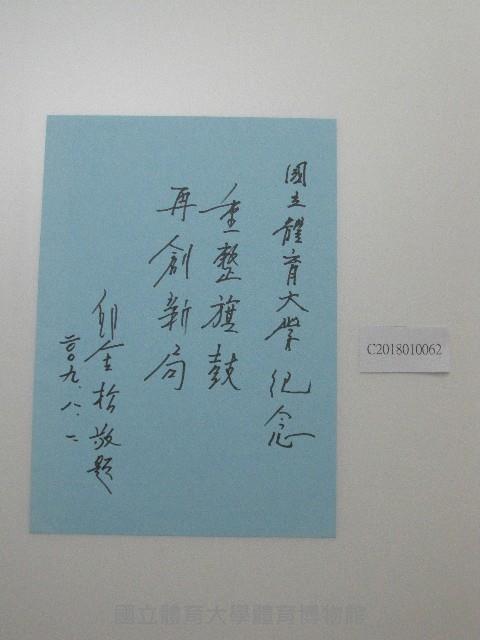 國立體育大學 紀念
重整旗鼓
再創新局
邱金松敬題
二〇〇九.八.一.
C2018010062
國立體育大學體育博物館